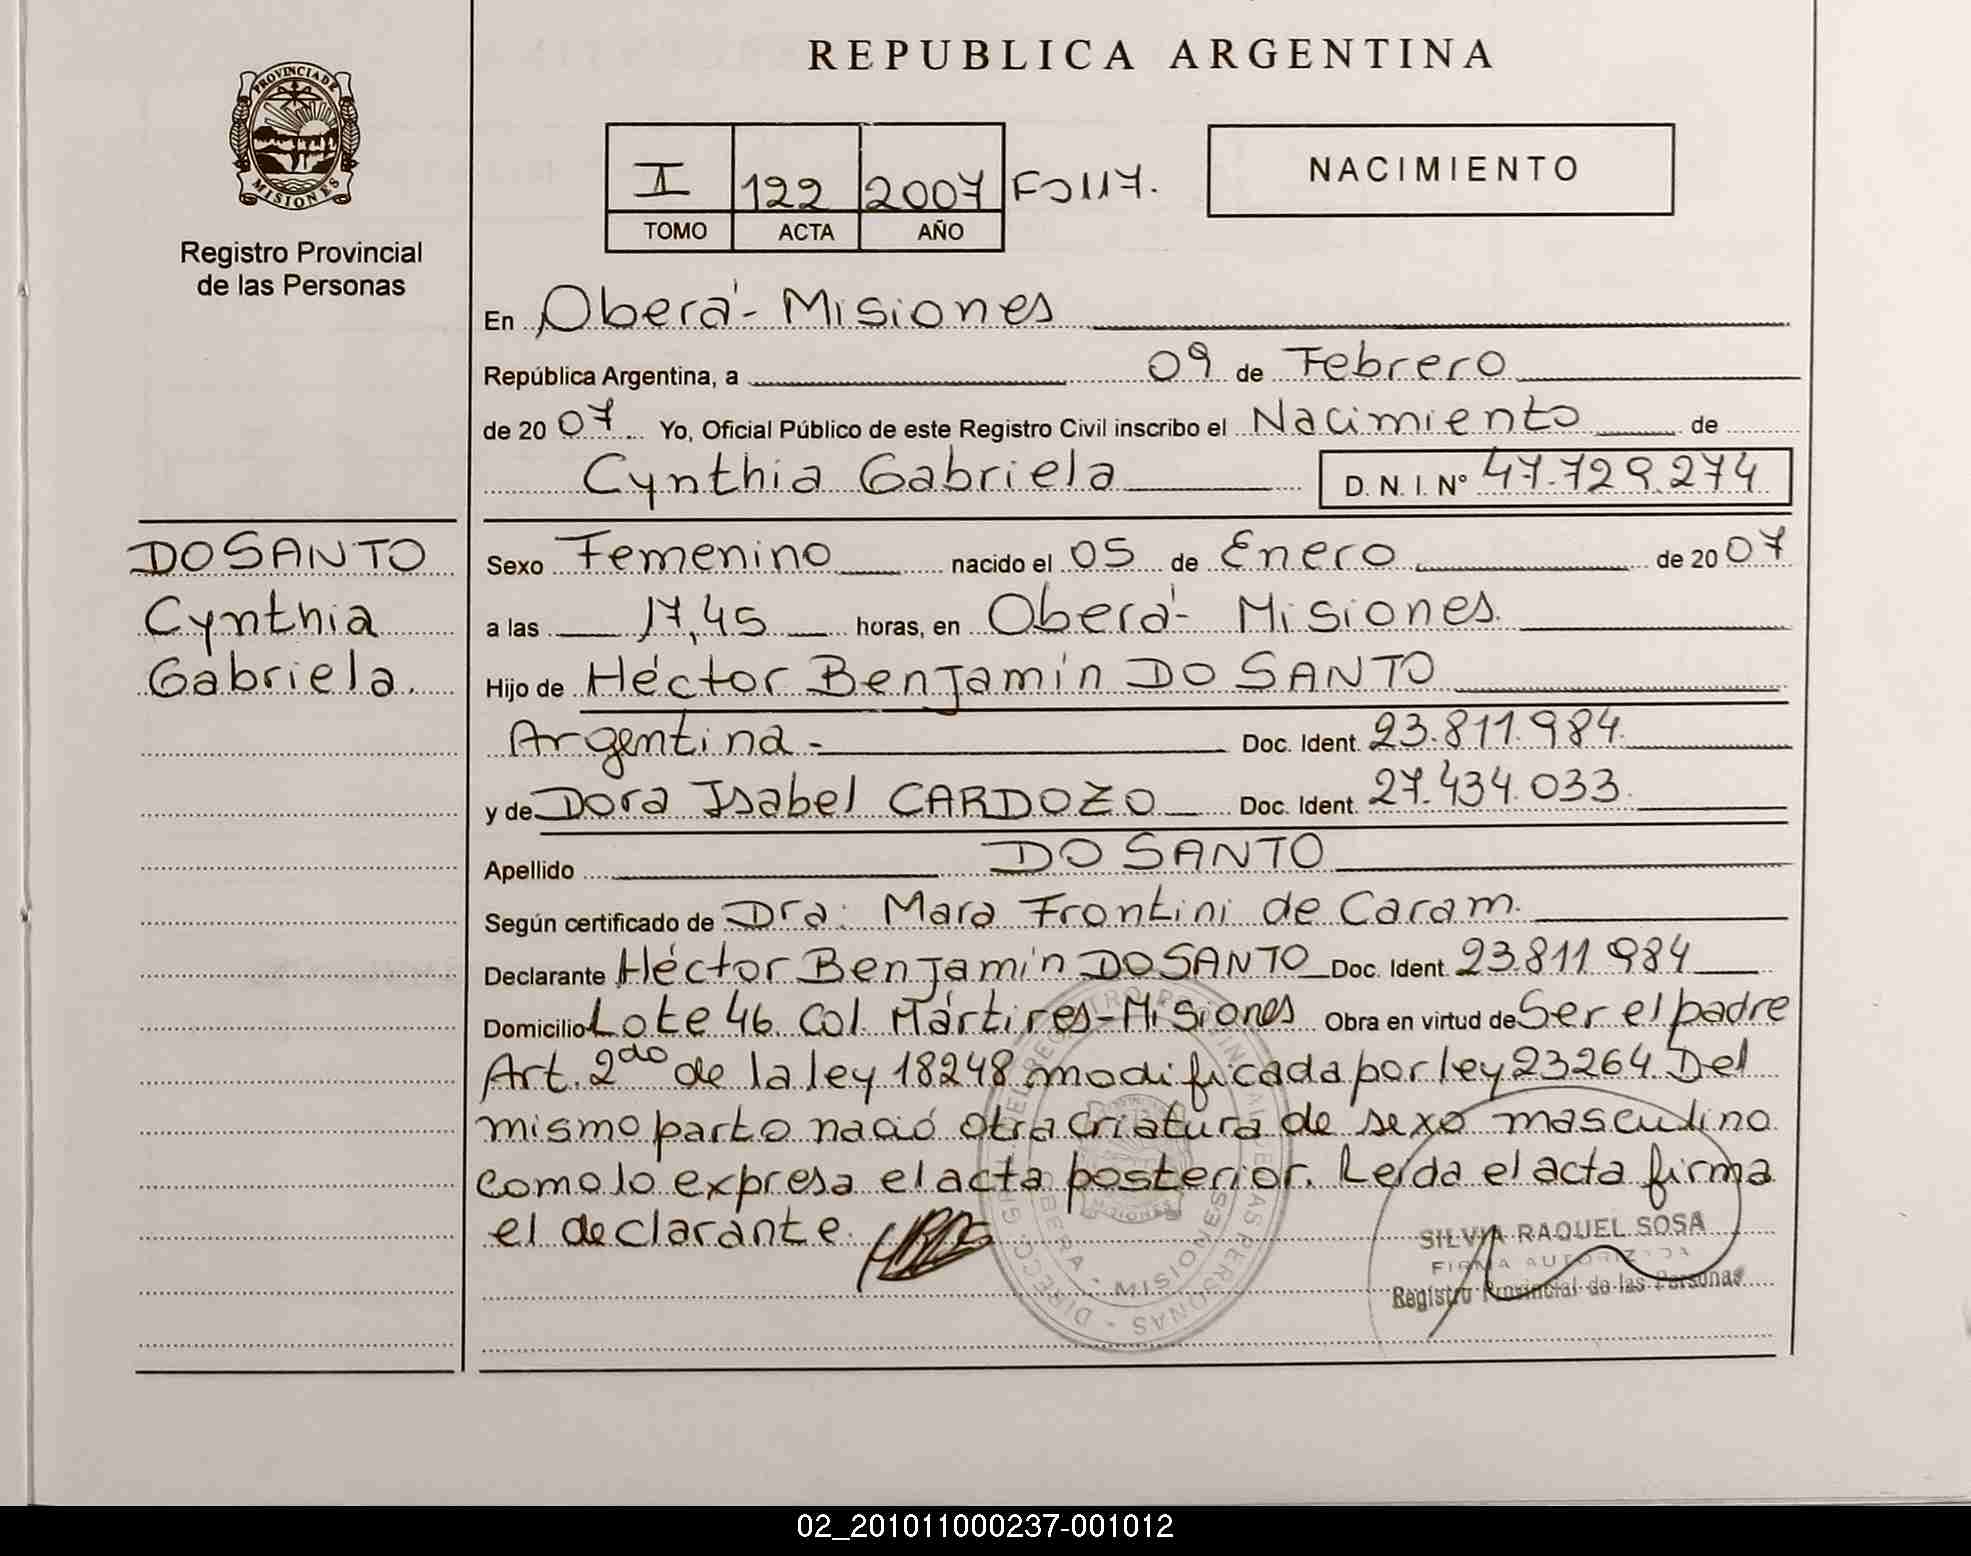 REPUBLICA ARGENTINA
PROVINCIA DE
MISIONES
Registro Provincial
de las Personas
I 122 2007 Fº 117.
TOMO ACTA AÑO
NACIMIENTO
En Oberá - Misiones
República Argentina, a 09 de Febrero
de 20 07 Yo, Oficial Público de este Registro Civil inscribo el Nacimiento de
Cynthia Gabriela D. N. I. Nº 47.729.274
DO SANTO
Cynthia
Gabriela.
Sexo Femenino nacido el 05 de Enero de 20 07
a las 17,45 horas, en Oberá - Misiones.
Hijo de Héctor Benjamín DO SANTO
Argentina - Doc. Ident. 23.811.984.
y de Dora Isabel CARDOZO Doc. Ident. 27.434.033.
Apellido DO SANTO
Según certificado de Dra: Mara Frontini de Caram.
Declarante Héctor Benjamín DO SANTO Doc. Ident. 23.811 984
Domicilio Lote 46 Col. Mártires - Misiones Obra en virtud de Ser el padre
Art. 2do de la ley 18248 modificada por ley 23264. Del
mismo parto nació otra criatura de sexo masculino
como lo expresa el acta posterior. Leída el acta firma
el declarante.
SILVIA RAQUEL SOSA
FIRMA AUTORIZADA
Registro Provincial de las Personas
02_201011000237-001012